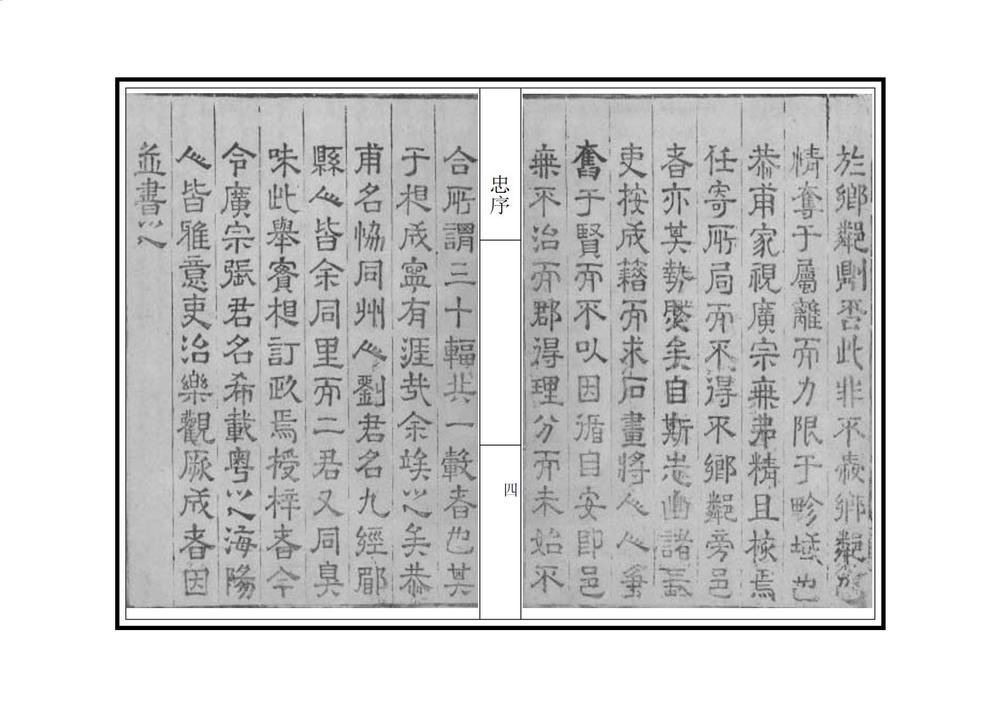 於鄉鄰則否此非不旁鄉鄰
情奪于屬離而力限于畛域也
恭甫家視廣宗無弗精且核焉
任寄所局而不得不鄉鄰旁邑
者亦其勢壓矣自斯志出諸
吏按成籍而求石畫將人人
奮于賢而不以因循自安即邑
無不治而郡得理分而未始不
忠序
四
合所謂三十輻共一轂者也其
于相成寧有涯哉余竢之矣恭
甫名協同州人劉君名九經郿
縣人皆余同里而二君又同臭
味此舉賓相訂政焉授梓者今
令廣宗張君名希載粵之海陽
人皆雅意吏治樂觀厥成者因
並書之